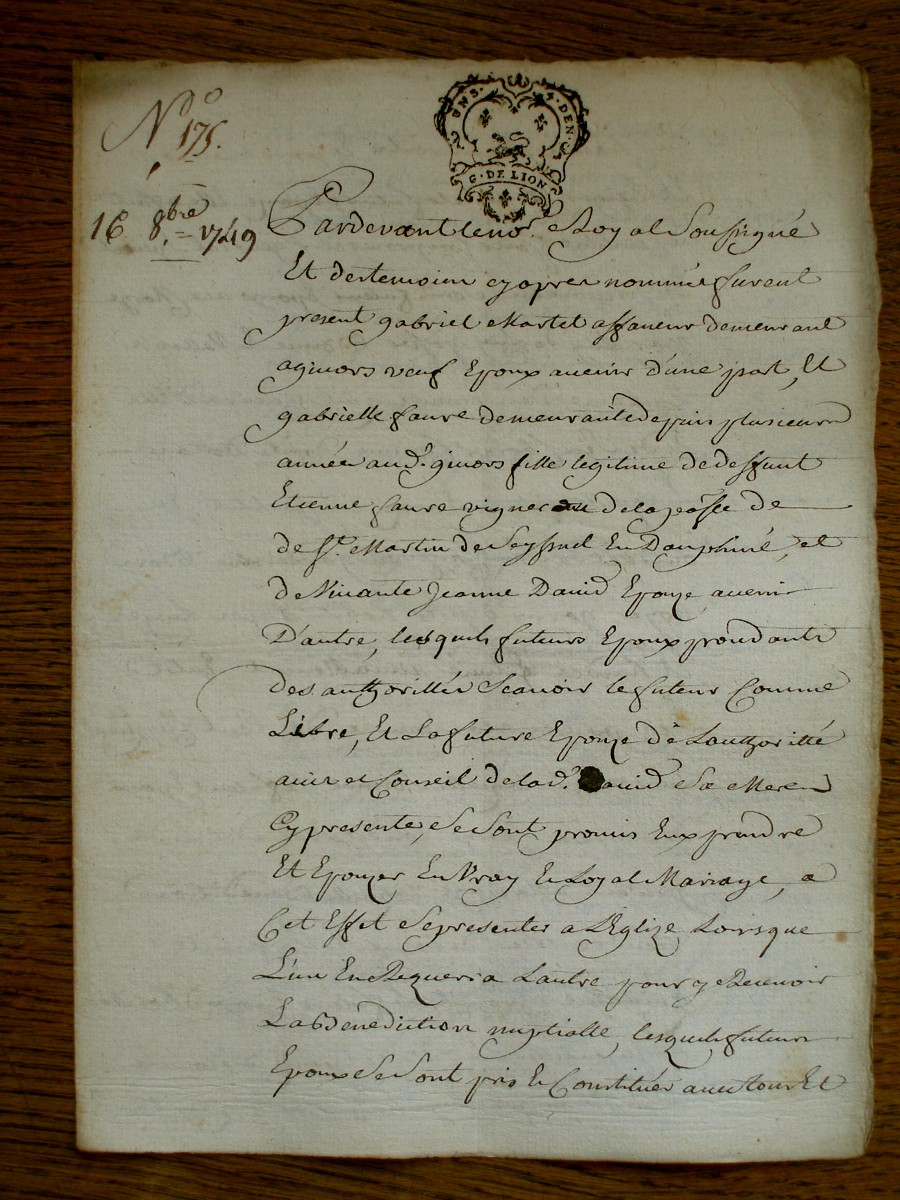 N.º 175.
UN S. 4. DEN.
G. DE LION
16 8.bre 1749
Pardevant le no.re Royal Soussigné
Et des temoins cy apres nommés furent
present gabriel Martel affaneur demeurant
a givors veuf Epoux avenir d'une part, Et
gabrielle faure demeurante depuis plusieurs
année aud.t givors fille legitime de deffunt
Etienne faure vigneron de la p.sse de
de S.t Martin de Seyssuel En Dauphiné, et
de Vivante Jeanne David Epouze avenir
D'autre, lesquels futurs Epoux procedants
des authorittés Scavoir le futeur Comme
Libre, Et La future Epouze de Lauthoritté
avis et Conseil de lad.e David Sa Mere
Cy presente, Se Sont promis Eux prendre
Et Epouzer En Vray Et Loyal Mariage, a
Cet Effet Se presenter a L'Eglize Loirsque
L'un En Requerra Lautre pour y Recevoir
La Benediction nuptialle, lesquels futurs
Epoux Se Sont pris Et Constitués avec tous Et